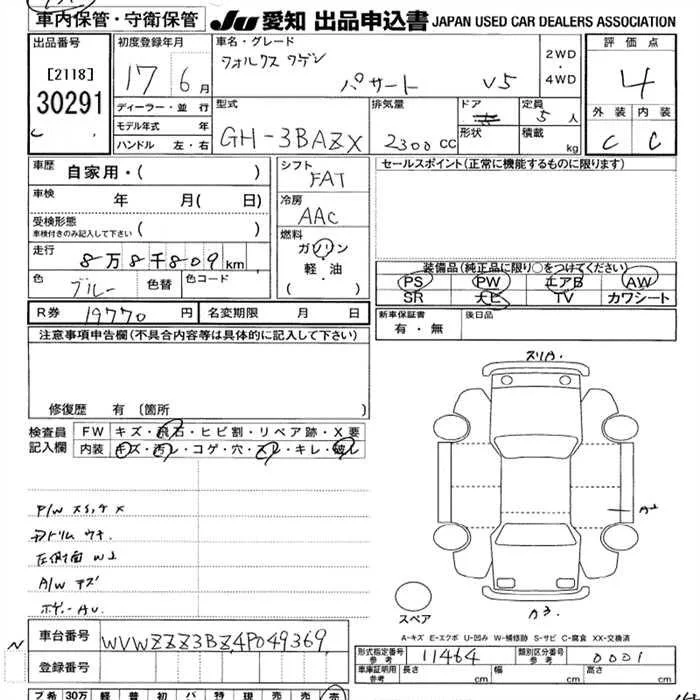 車内保管・守衛保管 JU 愛知 出品申込書 JAPAN USED CAR DEALERS ASSOCIATION
出品番号 初度登録年月 車名・グレード 2WD・4WD 評価点
[2118] 17 6月 フォルクス ワゲン
30291 パサート V5 4
ディーラー・並行 型式 排気量 ドア 定員 外装 内装
モデル年式 年 GH-3BAZX 2300CC 5人 C C
ハンドル 左・右 形状 積載 kg
車歴 自家用・( ) シフト FAT セールスポイント(正常に機能するものに限ります)
車検 年 月( 日) 冷房 AAC
受検形態 車検付きのみ記入して下さい ( ) 燃料
走行 8万8千809km ガソリン・軽油 装備品(純正品に限り○をつけてください)
色 ブルー 色替 色コード PS PW エアB AW
SR ナビ TV カワシート
R券 19770円 名変期限 月 日 新車保証書 有・無 後日品
注意事項申告欄(不具合内容等は具体的に記入して下さい)
スリ A・
修復歴 有(箇所 )
検査員記入欄 FW キズ・飛石・ヒビ割・リペア跡・X要
内装 キズ・汚レ・コゲ・穴・スレ・キレ・破レ
A2
左側面 W2
A/W キズ
ボデー AU
スペア A3
A-キズ E-エクボ U-凹み W-補修跡 S-サビ C-腐食 XX-交換済
車台番号 WVWZZZ3BZ4P049369
型式指定番号 参考 11464 類別区分番号 参考 0001
登録番号 車庫証明用 参考 長さ cm 幅 cm 高さ cm